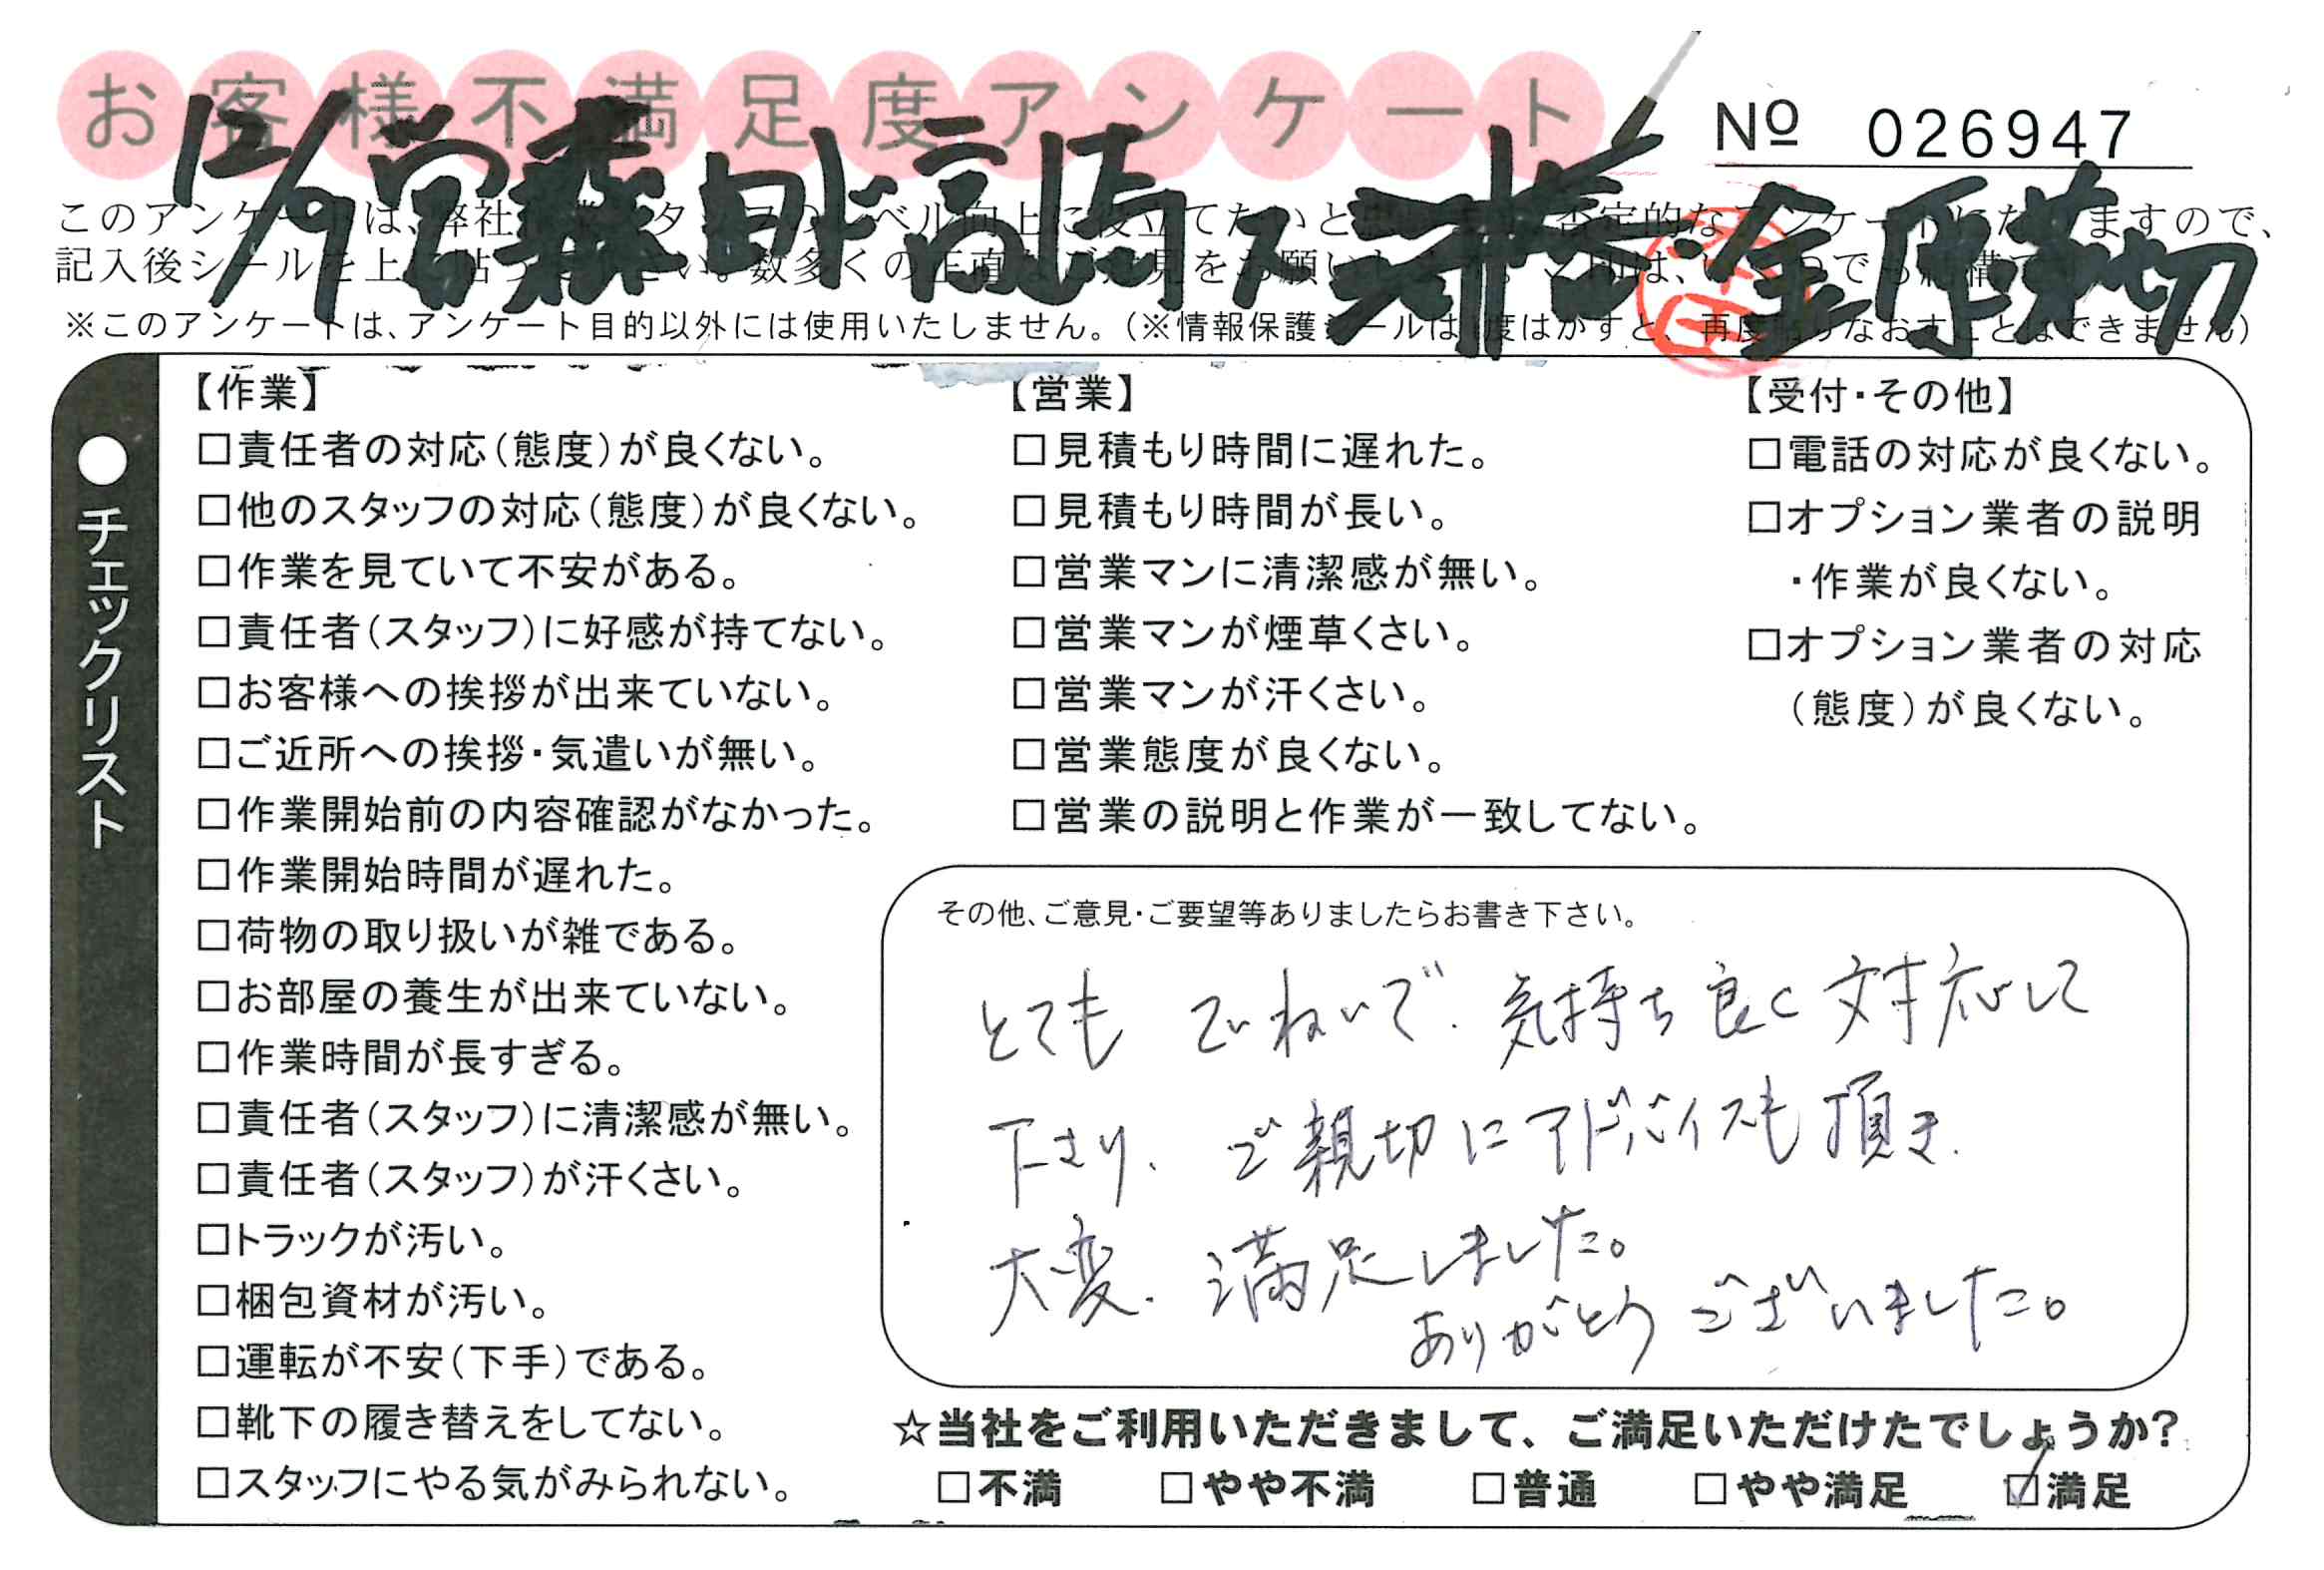 お客様不満足度アンケート
Nº 026947
12/9
※このアンケートは、アンケート目的以外には使用いたしません。(※情報保護シールは
●チェックリスト
【作業】
□責任者の対応(態度)が良くない。
□他のスタッフの対応(態度)が良くない。
□作業を見ていて不安がある。
□責任者(スタッフ)に好感が持てない。
□お客様への挨拶が出来ていない。
□ご近所への挨拶・気遣いが無い。
□作業開始前の内容確認がなかった。
□作業開始時間が遅れた。
□荷物の取り扱いが雑である。
□お部屋の養生が出来ていない。
□作業時間が長すぎる。
□責任者(スタッフ)に清潔感が無い。
□責任者(スタッフ)が汗くさい。
□トラックが汚い。
□梱包資材が汚い。
□運転が不安(下手)である。
□靴下の履き替えをしてない。
□スタッフにやる気がみられない。
【営業】
□見積もり時間に遅れた。
□見積もり時間が長い。
□営業マンに清潔感が無い。
□営業マンが煙草くさい。
□営業マンが汗くさい。
□営業態度が良くない。
□営業の説明と作業が一致してない。
【受付・その他】
□電話の対応が良くない。
□オプション業者の説明
・作業が良くない。
□オプション業者の対応
(態度)が良くない。
その他、ご意見・ご要望等ありましたらお書き下さい。
とても ていねいで、気持ち良く対応して
下さり、ご親切にアドバイスも頂き、
大変、満足しました。
ありがとうございました。
☆当社をご利用いただきまして、ご満足いただけたでしょうか?
□不満 □やや不満 □普通 □やや満足 ☑満足